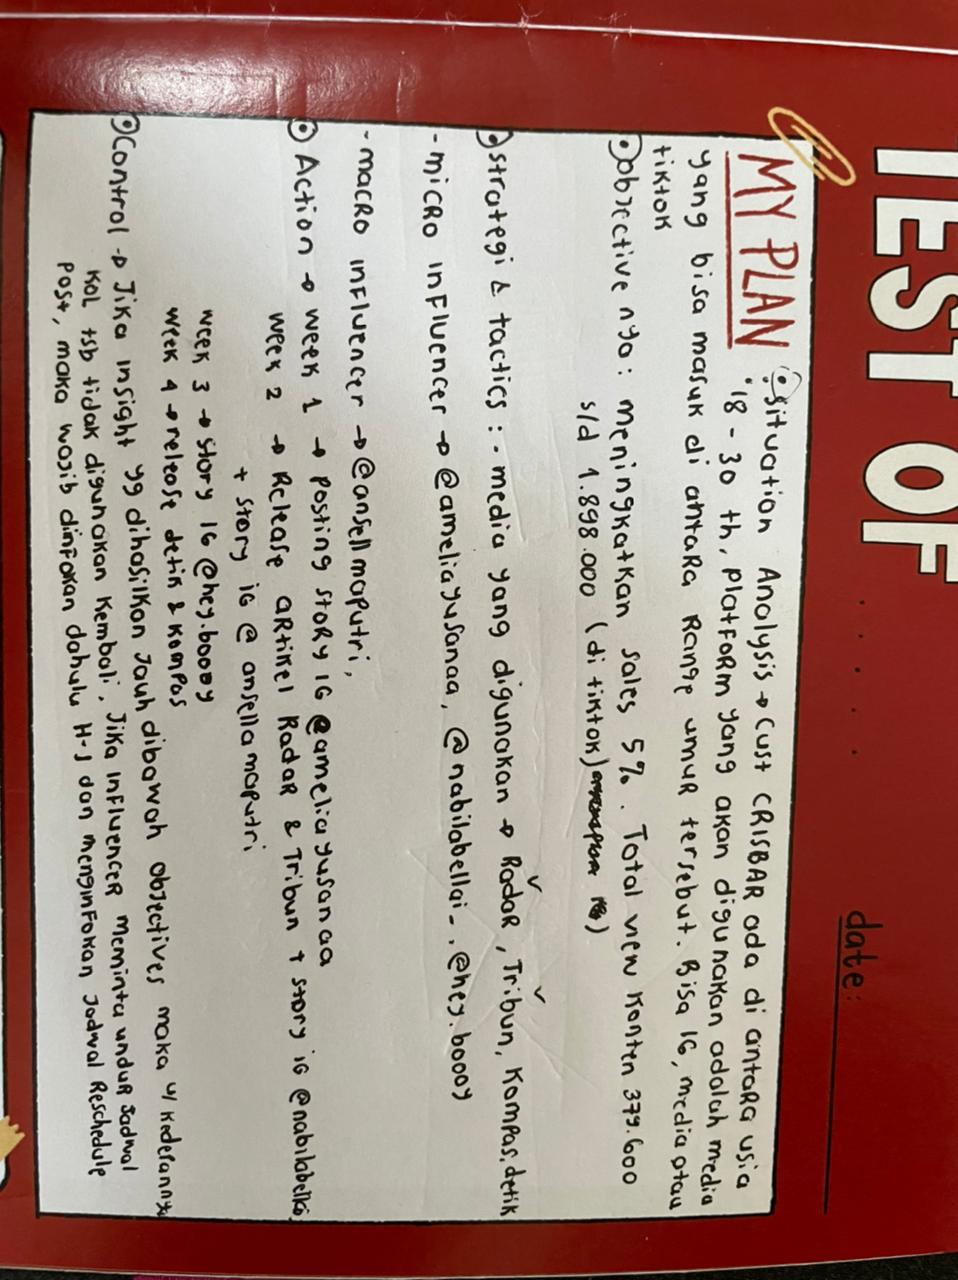 TEST OF ....
date:
MY PLAN
Situation Analysis → Cust CRISBAR ada di antara usia
18 - 30 th, platform yang akan digunakan adalah media
yang bisa masuk di antara Range umur tersebut. Bisa IG, media atau
tiktok
Objective nya : meningkatkan sales 5%. Total view konten 379.600
s/d 1.898.000 (di tiktok)
strategi & tactics : - media yang digunakan → Radar, Tribun, Kompas, detik
- micro influencer → @ameliayusanaa, @nabilabellai_, @hey.boooy
- macro influencer → @ansellmaputri,
Action → week 1 → posting story IG @ameliayusanaa
week 2 → Release artikel Radar & Tribun + story ig @nabilabellai
+ story ig @ansellamaputri
week 3 → story IG @hey.boooy
week 4 → release detik & Kompas
Control → Jika insight yg dihasilkan jauh dibawah objectives maka u/ kedepannya
KOL tsb tidak digunakan kembali. Jika influencer meminta undur jadwal
post, maka wajib diinfokan dahulu H-1 dan menginfokan jadwal Reschedule